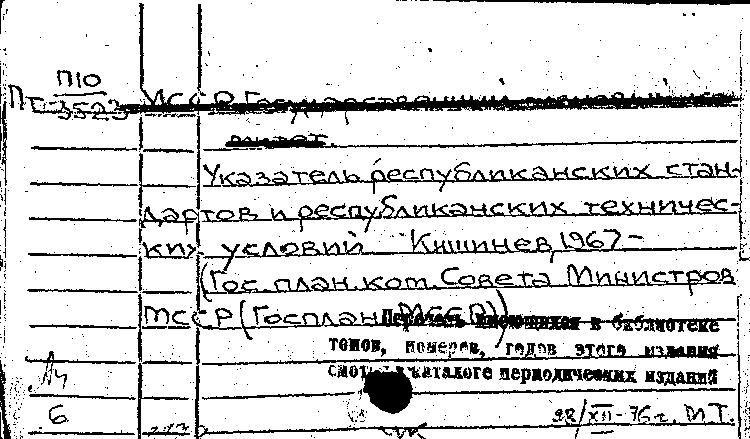 П10
П 3523 МССР. Государственный плановый ко-
митет.
Указатель республиканских стан-
дартов и республиканских техничес-
ких условий Кишинев, 1967 –
(Гос. план. ком. Совета Министров
МССР (Госплан МССР))
Перечень имеющихся в библиотеке
томов, номеров, годов этого издания
смотри в каталоге периодических изданий
6
22/XII-76 г. М.Т.